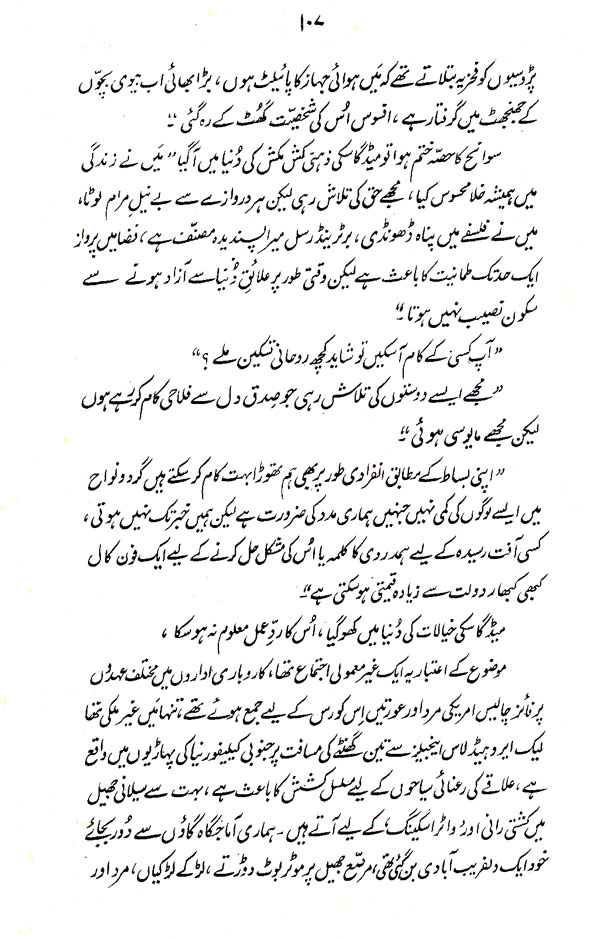 ۱۰۷
پڑوسیوں کو فخریہ بتلاتے تھے کہ مَیں ہوائی جہاز کا پائیلٹ ہوں، بڑا بھائی اب بیوی بچّوں
کے جھنجھٹ میں گرفتار ہے، افسوس اُس کی شخصیّت گھُٹ کے رہ گئی"
سوانح کا حصّہ ختم ہوا تو میڈگاسکی ذہنی کش مکش کی دُنیا میں آگیا "مَیں نے زندگی
میں ہمیشہ خلا محسوس کیا، مجھے حق کی تلاش رہی لیکن ہر دروازے سے بے نیلِ مرام لوٹا،
میں نے فلسفے میں پناہ ڈھونڈی، برٹرینڈ رسل میرا پسندیدہ مصنّف ہے، فضا میں پرواز
ایک حد تک طمانیت کا باعث ہے لیکن وقتی طور پر علائقِ دُنیا سے آزاد ہونے سے
سکون نصیب نہیں ہوتا۔"
"آپ کسی کے کام آسکیں تو شاید کچھ روحانی تسکین ملے؟"
"مجھے ایسے دوستوں کی تلاش رہی جو صدق دل سے فلاحی کام کر رہے ہوں
لیکن مجھے مایوسی ہوئی"
"اپنی بساط کے مطابق انفرادی طور پر بھی ہم تھوڑا بہت کام کر سکتے ہیں گرد و نواح
میں ایسے لوگوں کی کمی نہیں جنہیں ہماری مدد کی ضرورت ہے لیکن ہمیں خبر تک نہیں ہوتی،
کسی آفت رسیدہ کے لیے ہمدردی کا کلمہ یا اُس کی مشکل حل کرنے کے لیے ایک فون کال
کبھی کبھار دولت سے زیادہ قیمتی ہو سکتی ہے"
میڈگاسکی خیالات کی دُنیا میں کھو گیا، اُس کا ردِّ عمل معلوم نہ ہو سکا،
موضوع کے اعتبار یہ ایک غیر معمولی اجتماع تھا، کاروباری اداروں میں مختلف عہدوں
پر فائز چالیس امریکی مرد اور عورتیں اِس کورس کے لیے جمع ہوئے تھے، تنہا مَیں غیر ملکی تھا
لیک ایرو ہیڈ لاس اینجیلز سے تین گھنٹے کی مسافت پر جنوبی کیلیفورنیا کی پہاڑیوں میں واقع
ہے، علاقے کی رعنائی سیاحوں کے لیے مسلسل کشش کا باعث ہے، بہت سے سیلانی جھیل
میں کشتی رانی اور واٹر اسکینگ کے لیے آتے ہیں۔ ہماری آماجگاہ گاؤں سے دُور بجائے
خود ایک دلفریب آبادی بن گئی تھی، مرصّع جھیل پر موٹر بوٹ دوڑتے، لڑکے لڑکیاں، مرد اور